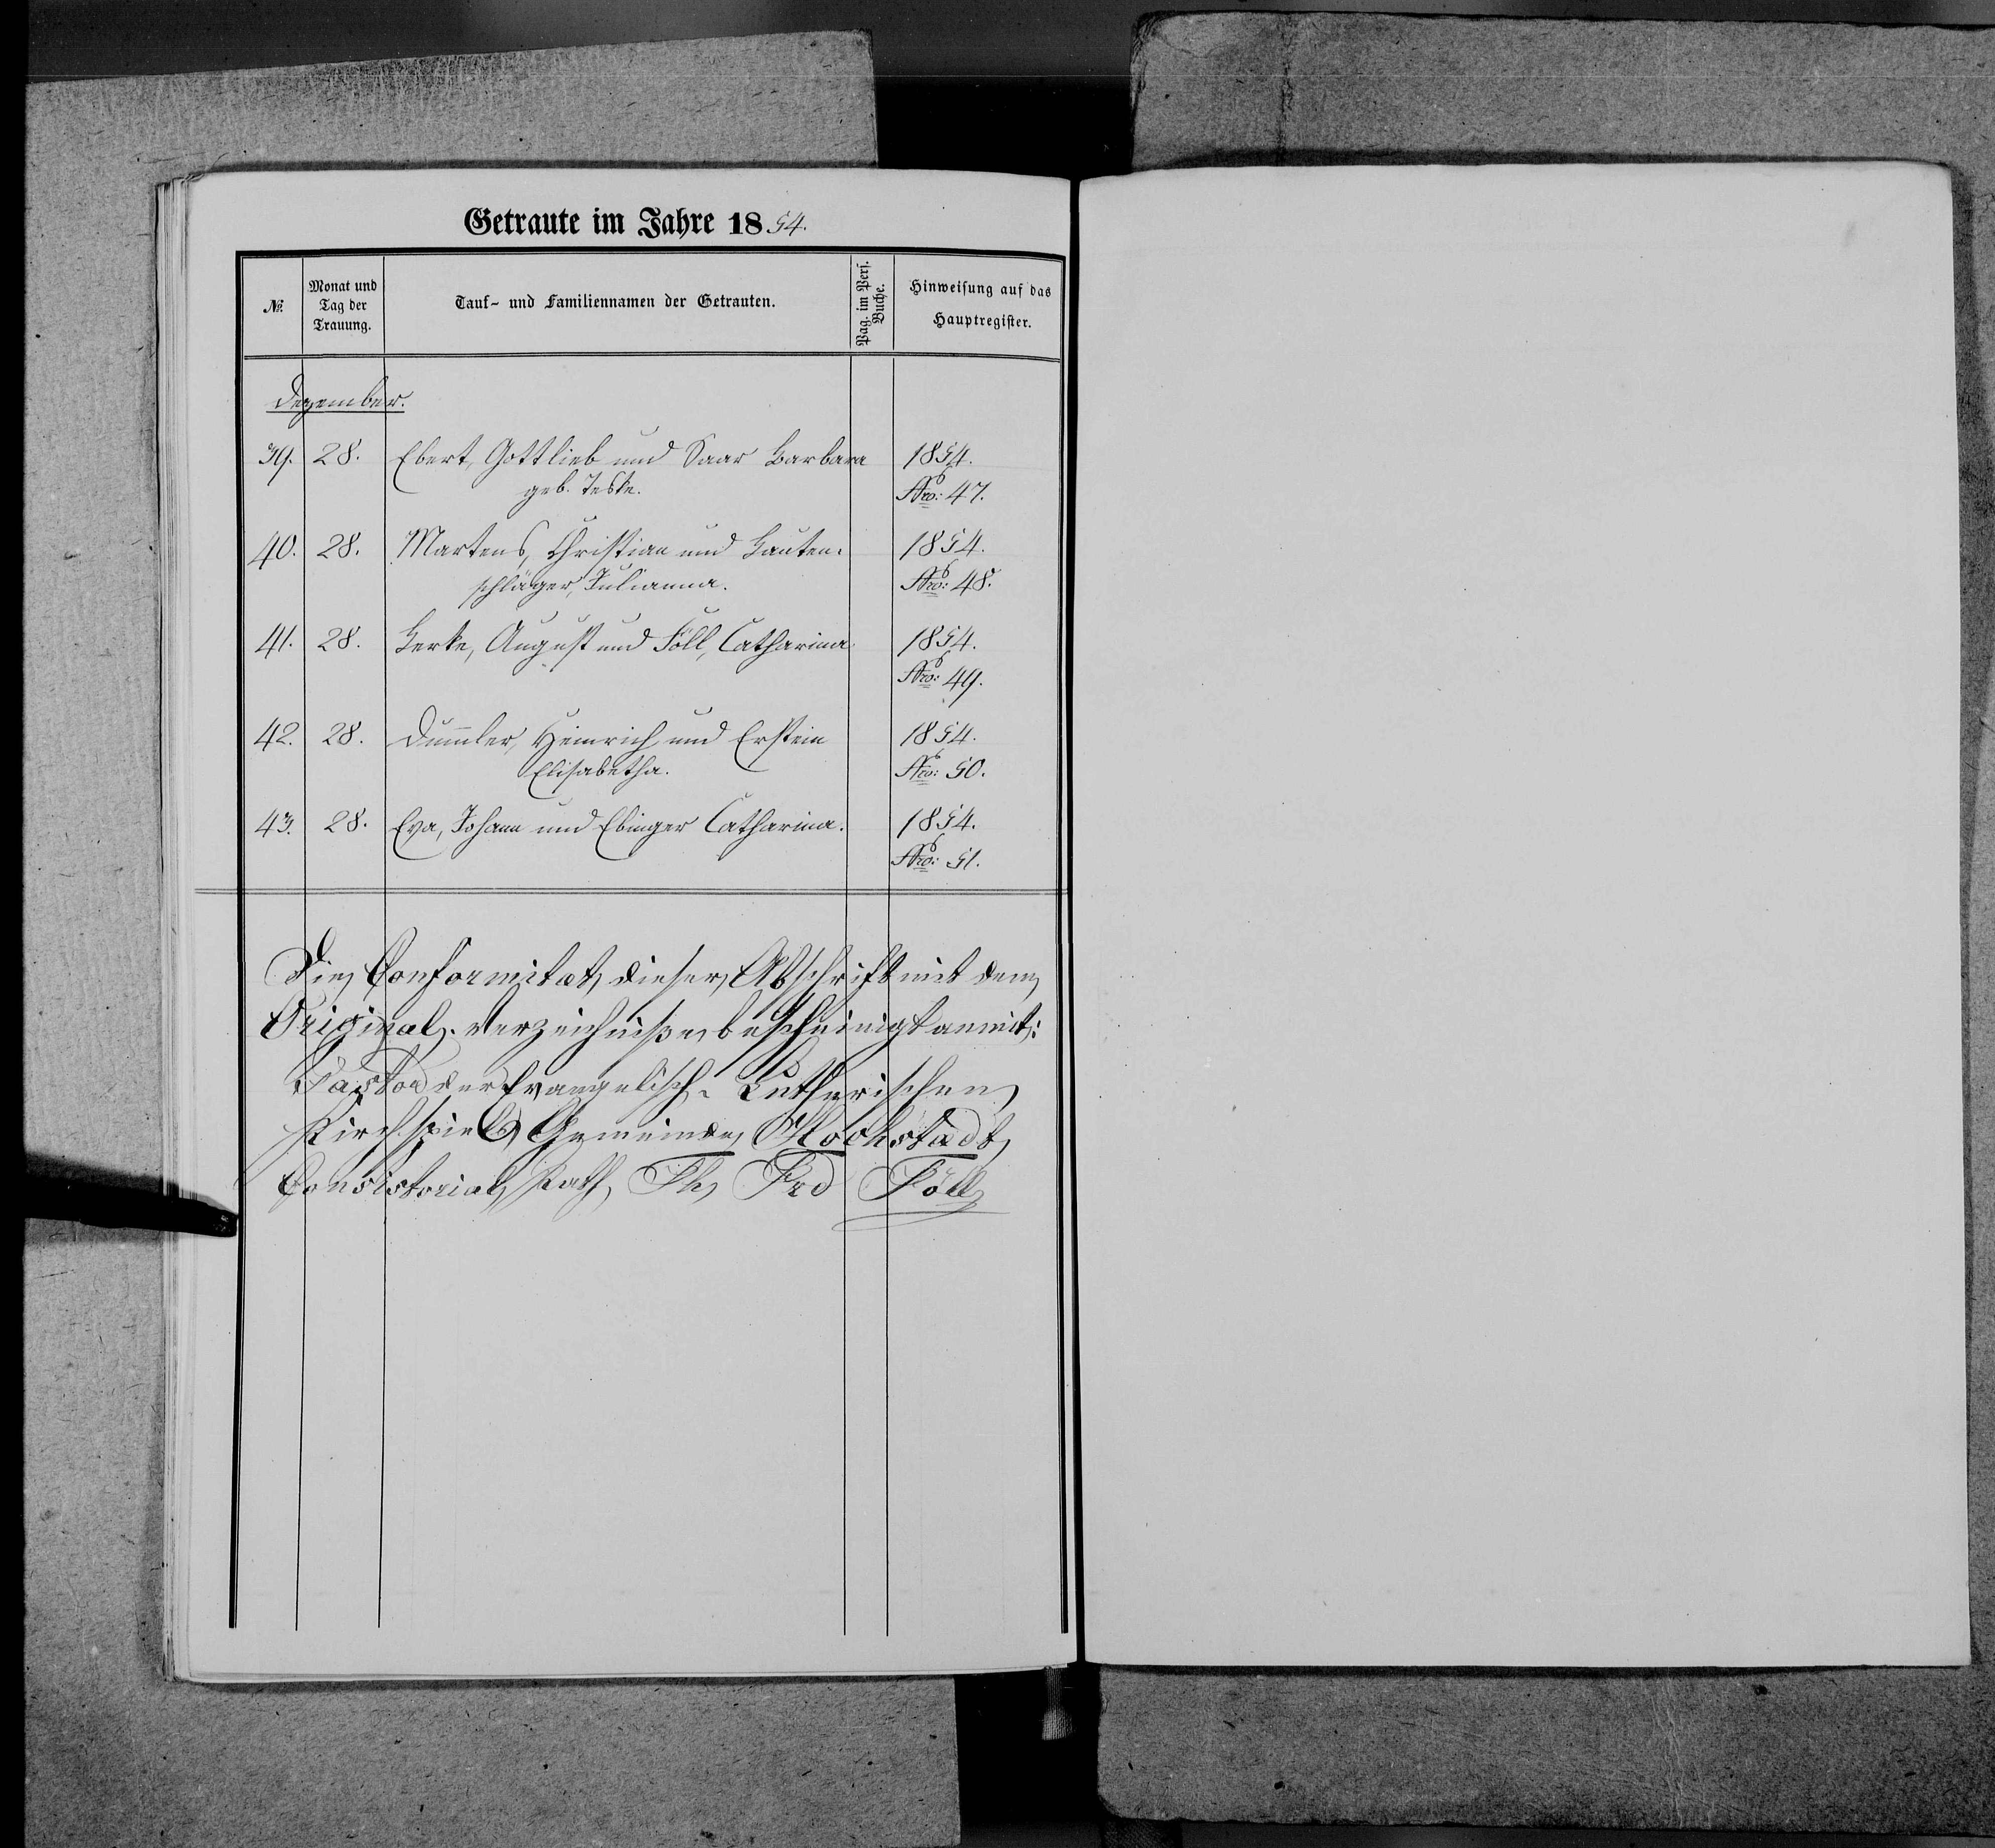 Getraute im Jahre 1854.
№
Monat und
Tag der
Trauung.
Tauf- und Familiennamen der Getrauten.
Pag. im Pers.
Buche.
Hinweisung auf das
Hauptregister.
Dezember.
39. 28. Ebert, Gottlieb und Saar Barbara 1854.
geb. Teske. Nro: 47.
40. 28. Martens, Christian und Lauten- 1854.
schläger, Julianna. Nro: 48.
41. 28. Lerke, August und Föll, Catharina 1854.
Nro: 49.
42. 28. Dum̅ler, Heinrich und Erstein 1854.
Elisabetha. Nro: 50.
43. 28. Eva, Johann und Ebinger Catharina. 1854.
Nro: 51.
Die Conformitat dieser Abschrift mit dem
Original-Verzeichniße bescheinigt anmit:
Pastor der Evangelisch-Lutherischen
Kirchspiels Gemeinde Hochstadt
Consistorial Rath Fr Föll